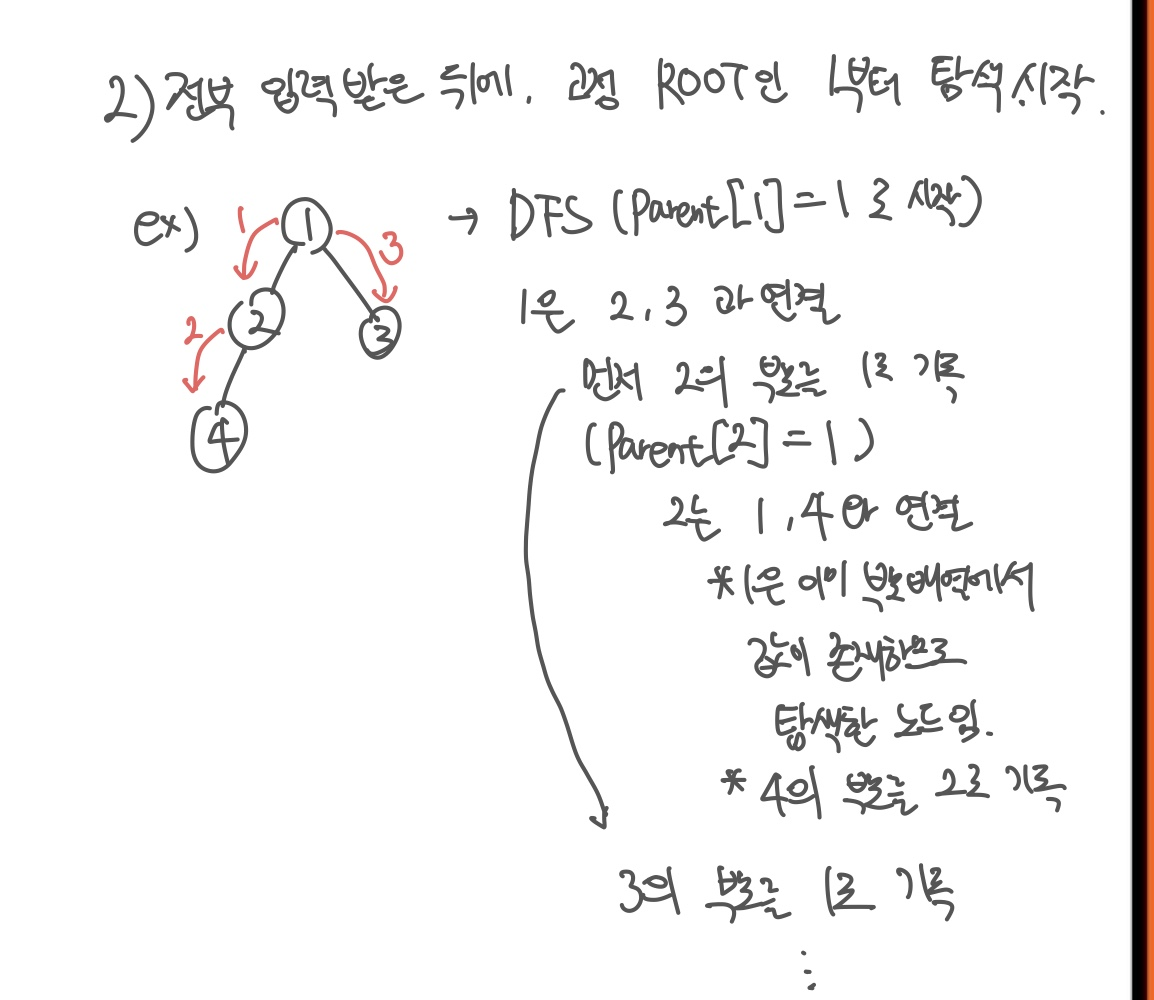 2) 전부 입력 받은 뒤에, 고정 ROOT인 1부터 탐색 시작.
ex)
1
2
3
1
2
3
4
→ DFS (Parent[1] = 1로 시작)
1은 2, 3 과 연결
먼저 2의 부모를 1로 기록
(Parent[2] = 1)
2는 1, 4와 연결
*1은 이미 부모배열에서
값이 존재하므로
탐색한 노드임.
* 4의 부모를 2로 기록
3의 부모를 1로 기록
⋮